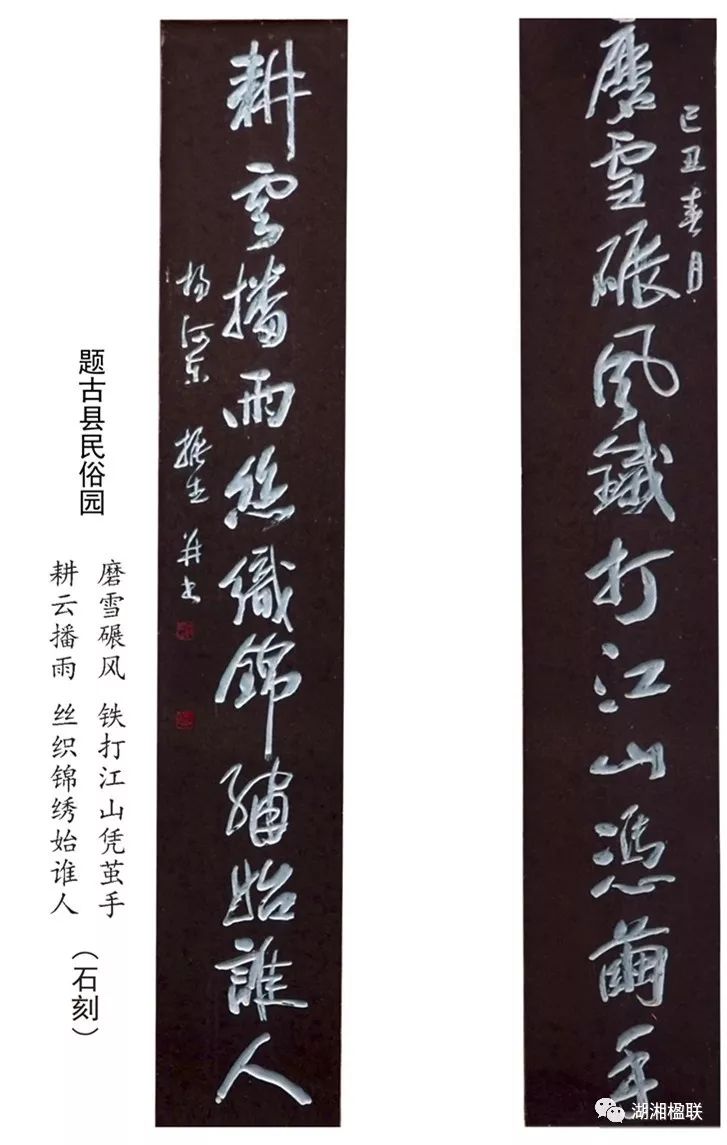 己丑春月
磨雪碾風鐵打江山憑繭手
耕雲播雨絲織錦繡始誰人
振生 并书
题古县民俗园
磨雪碾风 铁打江山凭茧手
耕云播雨 丝织锦绣始谁人
（石刻）
湖湘楹联